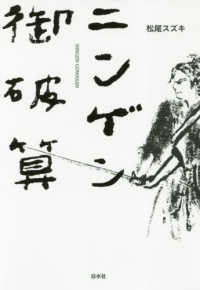 松尾スズキ
ニンゲン
御破算
NINGEN GOHASAN
白水社